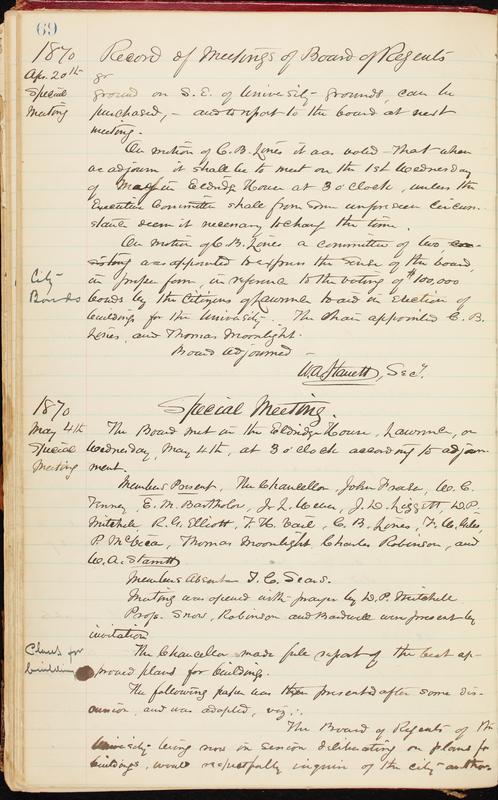 69
1870 Record of Meetings of Board of Regents
Apr. 20th gr
Special ground on S.E. of University grounds, can be
Meeting purchased, – and report to the board at next
meeting.
On motion of C. B. Lines it was voted – that when
we adjourn it shall be to meet on the 1st Wednesday
of May in Eldridg House at 3 o'clock, unless the
Executive Committee shall from some unforeseen circum-
stance deem it necessary to change the time.
On motion of C. B. Lines a committee of two, con-
sisting was appointed to express the sense of the board,
City in proper form, in reference to the voting of $100,000
Bonds bonds by the Citizens of Lawrence to aid in Erection of
buildings for the University. The Chair appointed C. B.
Lines, and Thomas Moonlight.
Board adjourned –
W. A. Starrett, Secy.
1870 Special Meeting.
May 4th The Board met in the Eldridge House, Lawrence, on
Special Wednesday, May 4th, at 3 o'clock according to adjourn-
Meeting ment.
Members Present, The Chancellor John Fraser, W. C.
Tenney, E. M. Bartholow, J. L. Wever, J. D. Liggett, D. P.
Mitchell, R. G. Elliott, F. H. Vail, C. B. Lines, F. W. Giles,
P. McVicar, Thomas Moonlight, Charles Robinson, and
W. A. Starrett
Members Absent T. C. Sears.
Meeting was opened with prayer by D. P. Mitchell
Profs. Snow, Robinson and Bardwell were present by
invitation
The Chancellor made full report of the best ap-
for building proved plans for buildings.
The following paper was then presented after some dis-
cussion, and was adopted, viz:
The Board of Regents of the
University being now in session deliberating on plans for
buildings, would respectfully inquire of the city author-